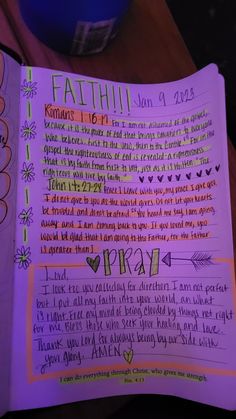 FAITH!!! Jan 9 2023
Romans 1:16-17 For I am not ashamed of the gospel,
because it is the power of God that brings salvation to everyone
who believes: first to the Jew, then to the Gentile. For in the
gospel the righteousness of God is revealed-a righteousness
that is by faith from first to last, just as it is written "The
righteous will live by faith."
John 14:27-28 Peace I leave with you, my peace I give you.
I do not give to you as the world gives. Do not let your hearts
be troubled and do not be afraid. "You heard me say, I am going
away and I am coming back to you. If you loved me, you
would be glad that I am going to the Father, for the father
is greater than I.
PRAY
Lord,
I look to you each day for directions. I am not perfect
but I put all my faith into your world, an what
is right. Free my mind of being clouded by things not right
for me. Bless those who seek your healing and love.
Thank you Lord for always being by our side with
your glory. AMEN
I can do everything through Christ, who gives me strength.
Phil. 4:13